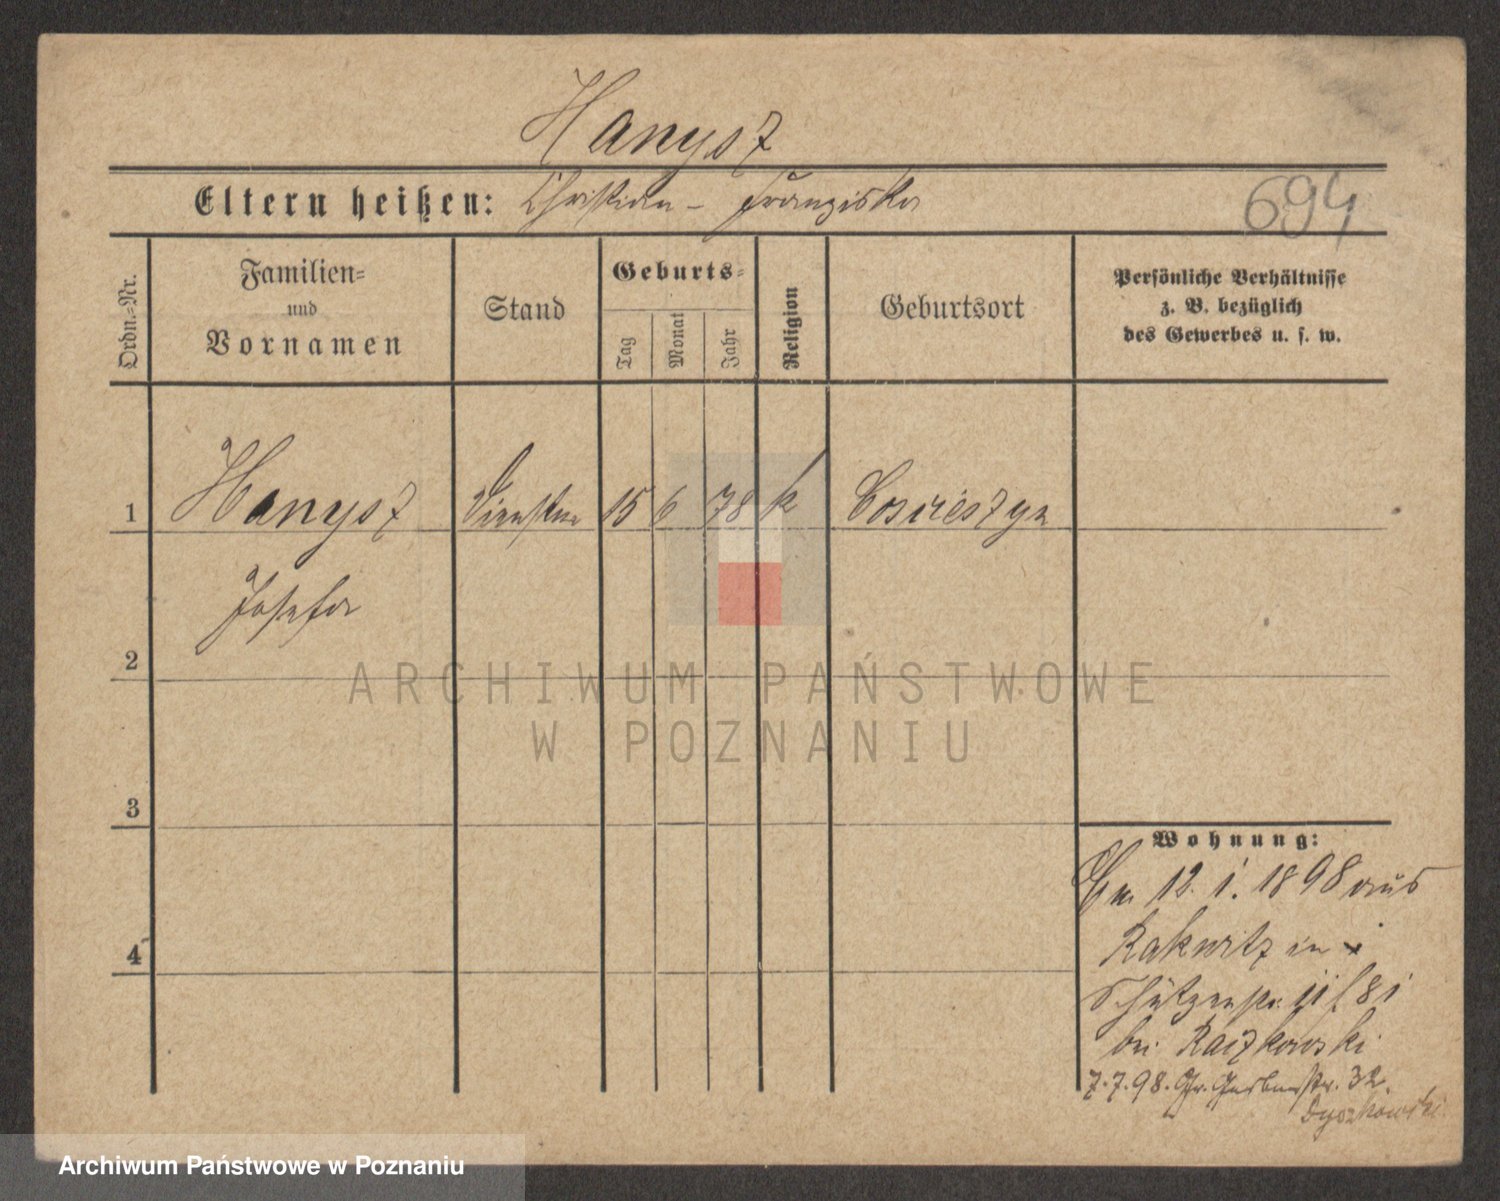 Hanysz
Eltern heißen: Christian - Franziska
694
Ordn.-Nr.
Familien-
und
Vornamen
Stand
Geburts-
Tag
Monat
Jahr
Religion
Geburtsort
Persönliche Verhältnisse
z. B. bezüglich
des Gewerbes u. s. w.
1 Hanysz 15 6 78 k
Josefa
2
3
4
ARCHIWUM PAŃSTWOWE
W POZNANIU
Wohnung:
Am 12. 1. 1898 aus
Rakwitz in
Schützenstr.
bei Raczkowski
7.7.98. Gr. Gerberstr. 32.
Archiwum Państwowe w Poznaniu